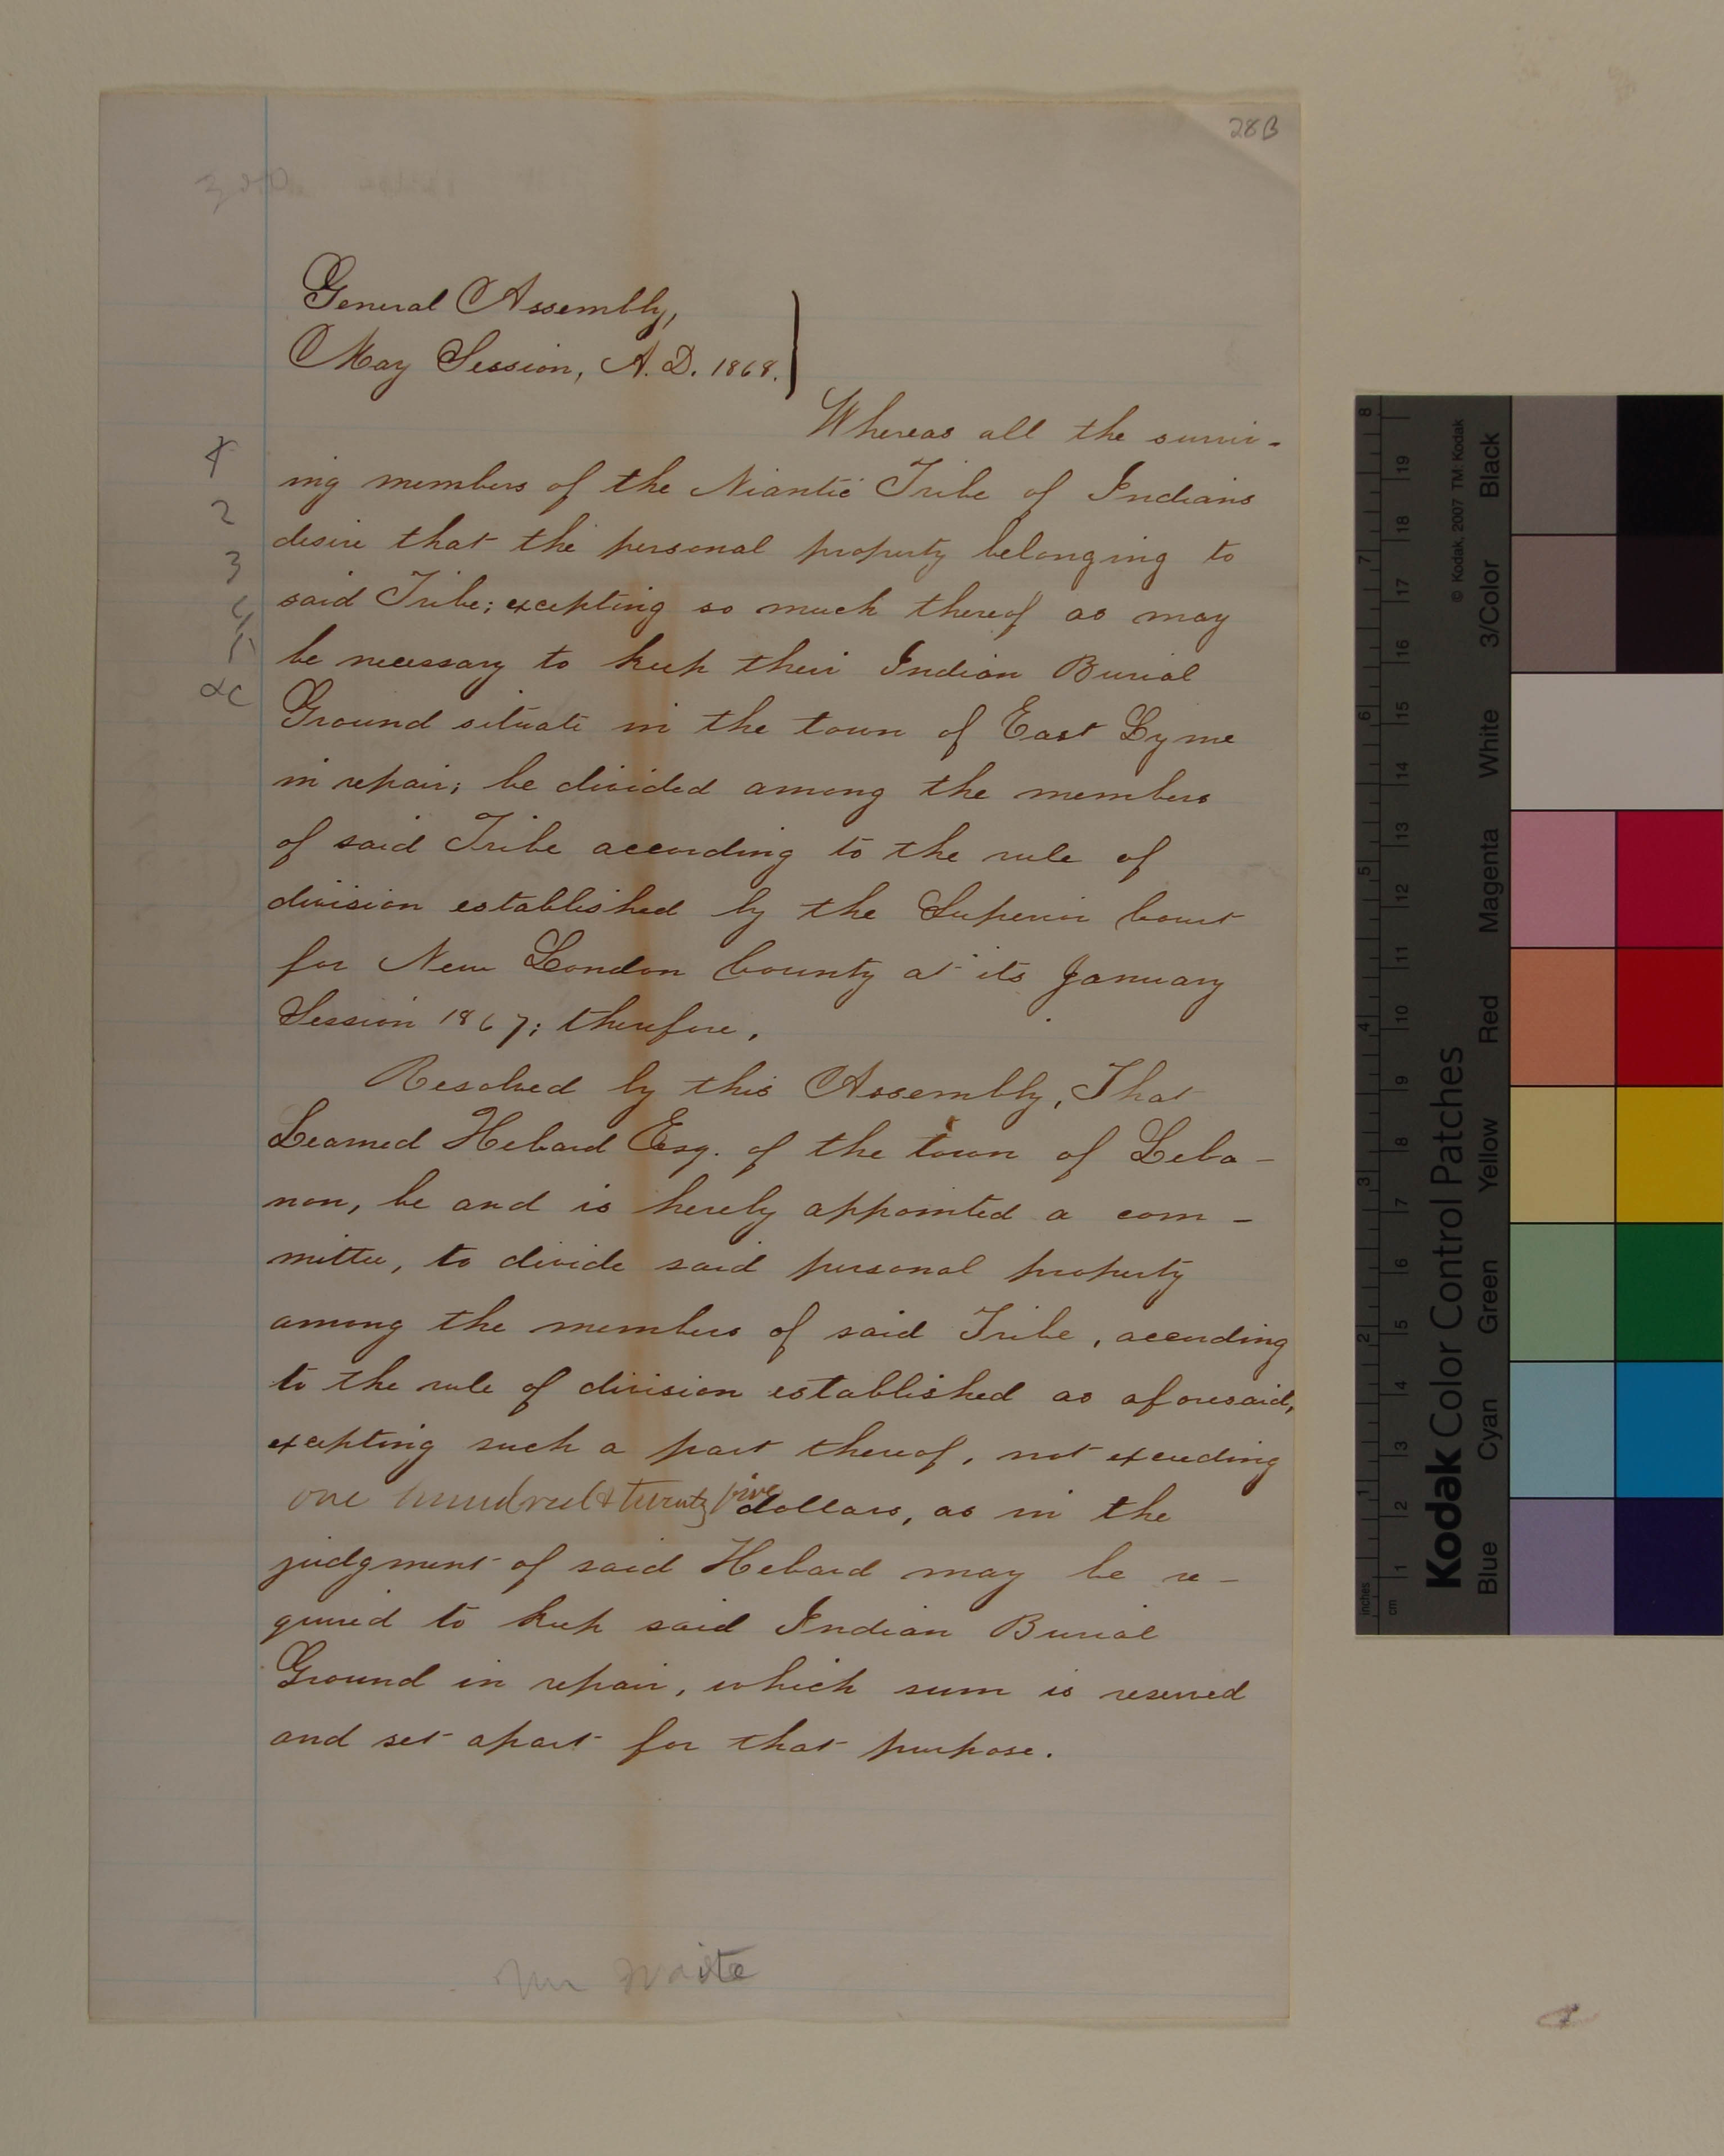 28B
General Assembly,
May Session, A.D. 1868.
Whereas all the surviv-
ing members of the Niantic Tribe of Indians
desire that the personal property belonging to
said Tribe; excepting so much thereof as may
be necessary to keep their Indian Burial
Ground situate in the town of East Lyme
in repair; be divided among the members
of said Tribe according to the rule of
division established by the Superior Court
for New London County at its January
Session 1867; therefore,
Resolved by this Assembly, That
Learned Hebard Esq. of the town of Leba-
non, be and is hereby appointed a com-
mittee, to divide said personal property
among the members of said Tribe, according
to the rule of division established as aforesaid,
excepting such a part thereof, not exceeding
one hundred & twenty five dollars, as in the
judgment of said Hebard may be re-
quired to keep said Indian Burial
Ground in repair, which sum is reserved
and set apart for that purpose.
1
2
3
4
5
&c
Waite
Kodak Color Control Patches
© Kodak, 2007 TM: Kodak
Blue Cyan Green Yellow Red Magenta White 3/Color Black
inches 1 2 3 4 5 6 7 8
cm 1 2 3 4 5 6 7 8 9 10 11 12 13 14 15 16 17 18 19